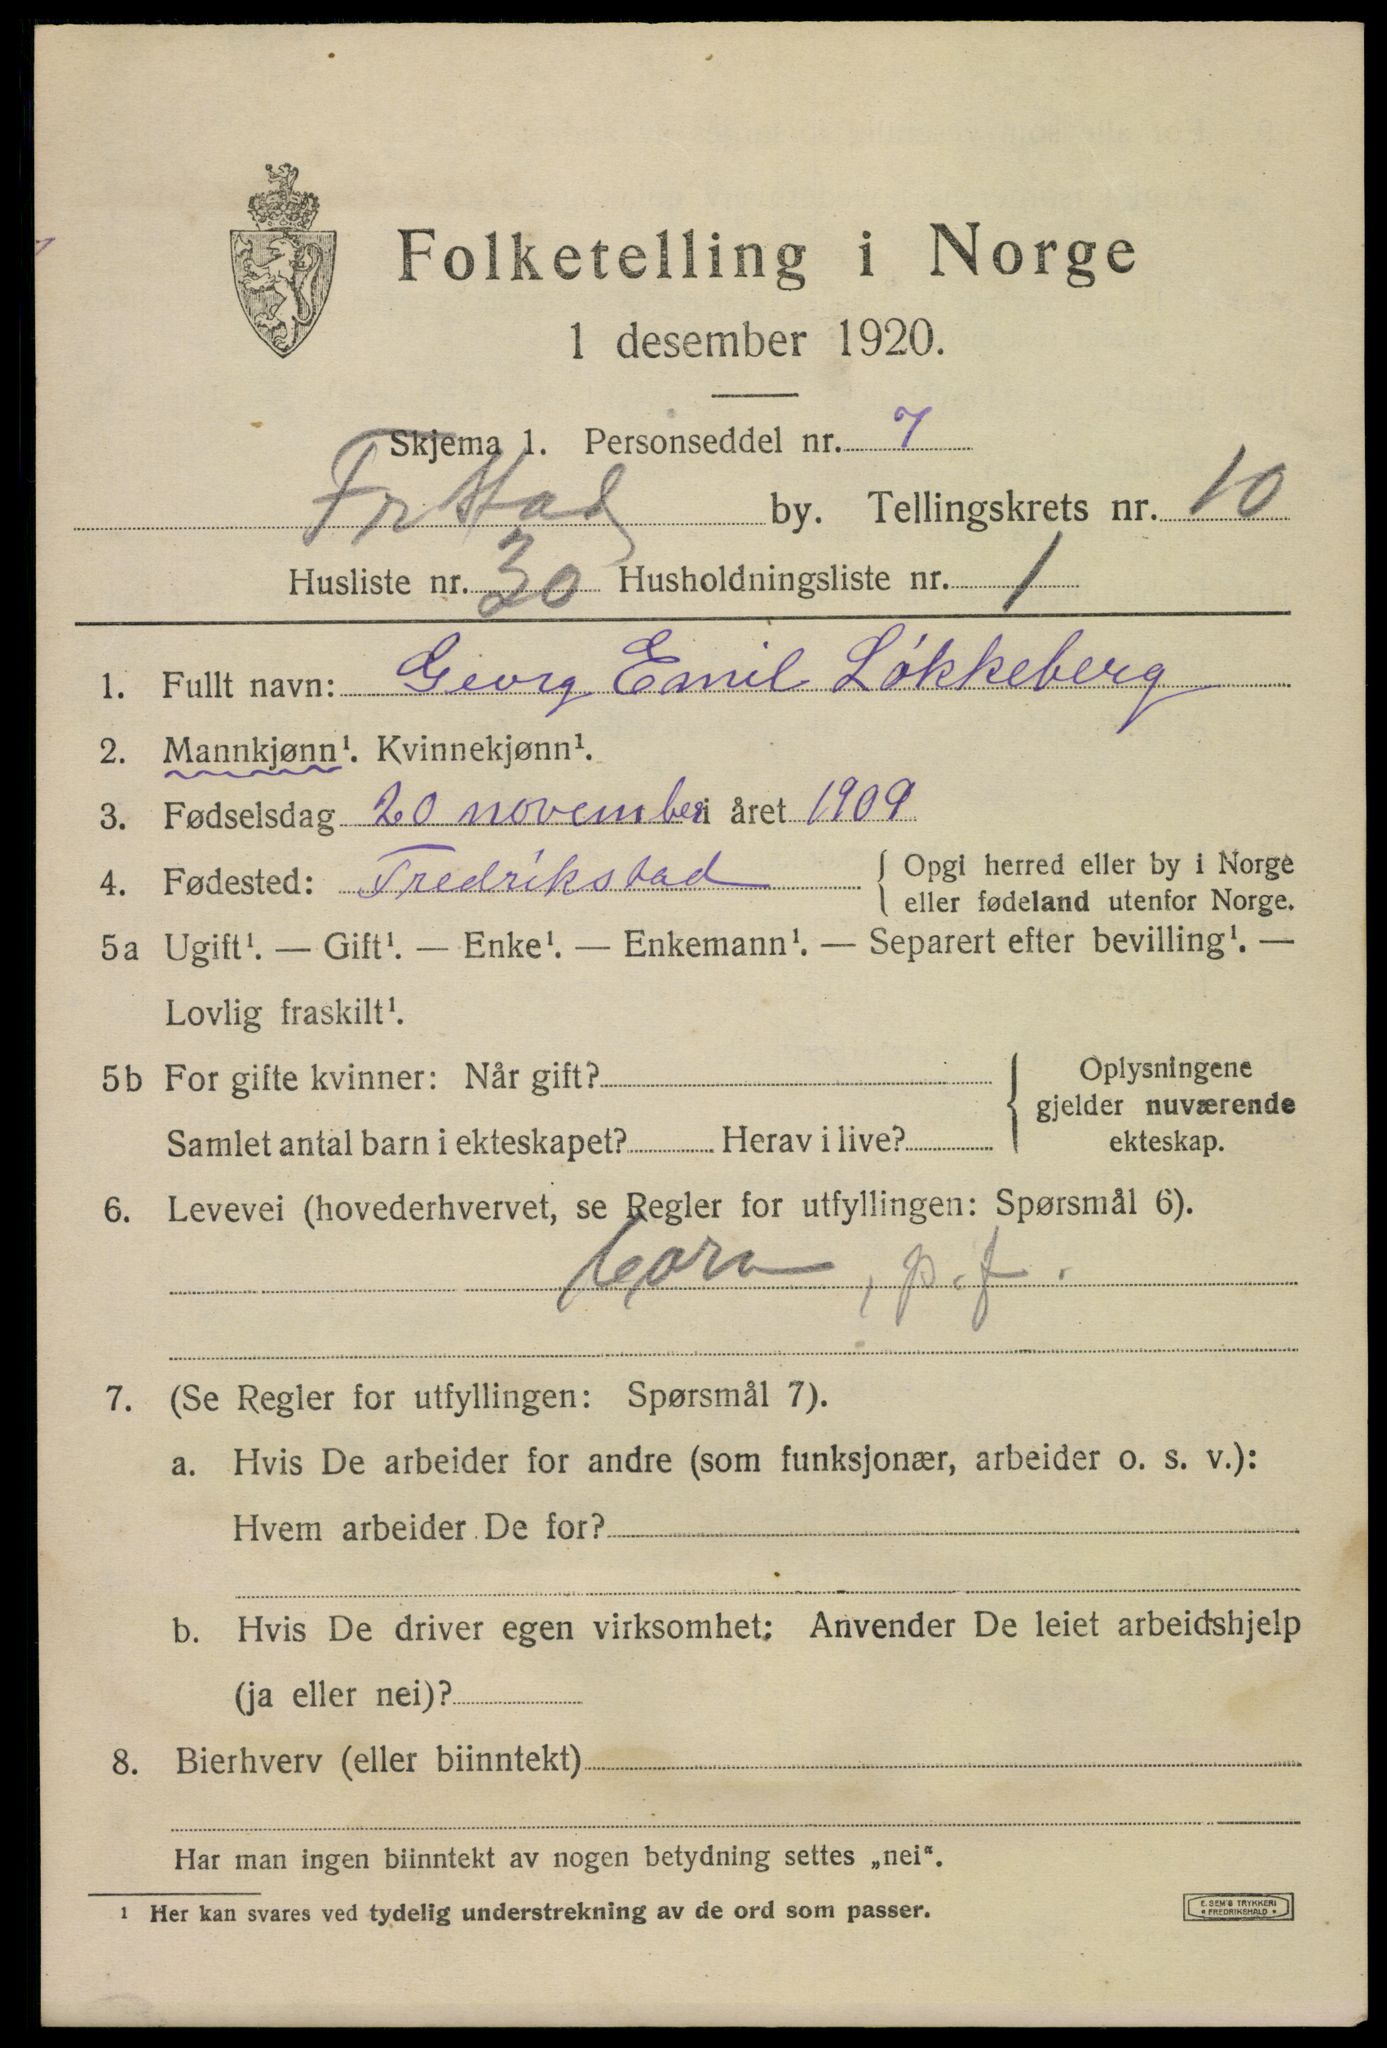 Folketelling i Norge
1 desember 1920.
Skjema 1. Personseddel nr. 7
Frstad by. Tellingskrets nr. 10
Husliste nr. 30 Husholdningsliste nr. 1
1. Fullt navn: Georg Emil Løkkeberg
2. Mannkjønn¹. Kvinnekjønn¹.
3. Fødselsdag 20 november i året 1909
4. Fødested: Fredrikstad { Opgi herred eller by i Norge
eller fødeland utenfor Norge.
5a Ugift¹. — Gift¹. — Enke¹. — Enkemann¹. — Separert efter bevilling¹. —
Lovlig fraskilt¹.
5b For gifte kvinner: Når gift? { Oplysningene
gjelder nuværende
Samlet antal barn i ekteskapet? Herav i live? ekteskap.
6. Levevei (hovederhvervet, se Regler for utfyllingen: Spørsmål 6).
, p. f.
7. (Se Regler for utfyllingen: Spørsmål 7).
a. Hvis De arbeider for andre (som funksjonær, arbeider o. s. v.):
Hvem arbeider De for?
b. Hvis De driver egen virksomhet: Anvender De leiet arbeidshjelp
(ja eller nei)?
8. Bierhverv (eller biinntekt)
Har man ingen biinntekt av nogen betydning settes „nei".
¹ Her kan svares ved tydelig understrekning av de ord som passer.
E. SEM'S TRYKKERI
FREDRIKSHALD